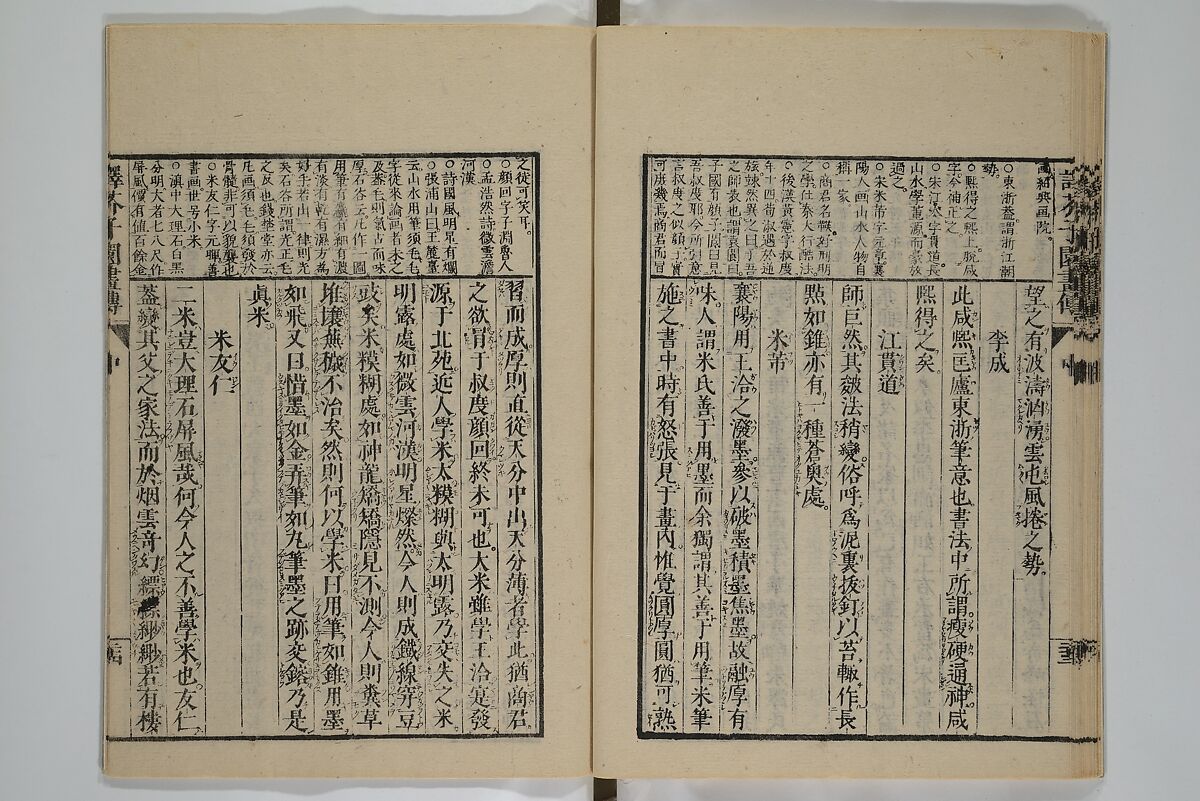 画紹興画院。
○東浙蓋謂浙江潮
勢。
○熙得之熙上脫咸
字今補正之
○宋江參字貫道長
山水學董源而豪放
過之。
○宋米芾字元章襄
陽人画山水人物自
稱一家
○商君名鞅好刑明
之學仕秦大行酷法
○後漢黃憲字叔度
年十四荀淑遇於逆
旅竦然異之曰吾子
之師表也謂袁閬曰
子國有顏子閬曰見
吾叔度邪今所謂意
言叔度之似顏子實
可庶幾焉商君而冒
望之有波濤洶湧雲屯風捲之勢。
李成
此咸熙匡廬東浙筆意也書法中所謂瘦硬通神咸
熙得之矣
江貫道
師巨然其皴法稍變俗呼爲泥裏拔釘以苔輙作長
㸃如錐亦有一種蒼奧處
米芾
襄陽用王洽之潑墨參以破墨積墨焦墨故融厚有
味人謂米氏善于用墨而余獨謂其善于用筆米筆
施之書中時有怒張見于畫內惟覺圓厚圓猶可熟
之從可笑耳。
○顏回字子淵魯人
○孟浩然詩微雲澹
河漢
○詩國風明星有爛
○張浦山曰王麓臺
云山水用筆須毛毛
字從來論画者未之
及蓋毛則氣古而味
厚石谷云凡作一圖
用筆有麤有細有濃
有淡有乾有濕方為
好手若出一律則光
矣石谷所謂光正毛
之反也錢塾堂亦云
凡画須毛毛須發於
骨髓非可以貌襲也
○米友仁字元暉善
書画世号小米
○滇中大理石白黑
分明大者七八尺作
屏風價有值百餘金
習而成厚則直從天分中出天分薄者學此猶商君
之欲冐于叔度顏回終未可也大米難學王洽寔發
源于北苑近人學米太糢糊與太明露乃交失之米
明露處如微雲河漢明星燦然今人則成鐵線穿豆
豉矣米糢糊處如神龍矯矯隱見不測今人則糞草
堆壤蕪穢不治矣然則何以學米曰用筆如錐用墨
如飛又曰惜墨如金弄筆如丸筆墨之跡交鎔乃是
眞米
米友仁
二米豈大理石屏風哉何今人之不善學米也友仁
蓋變其父之家法而於烟雲奇幻縹縹緲緲若有樓
譯芥子園畫傳
中